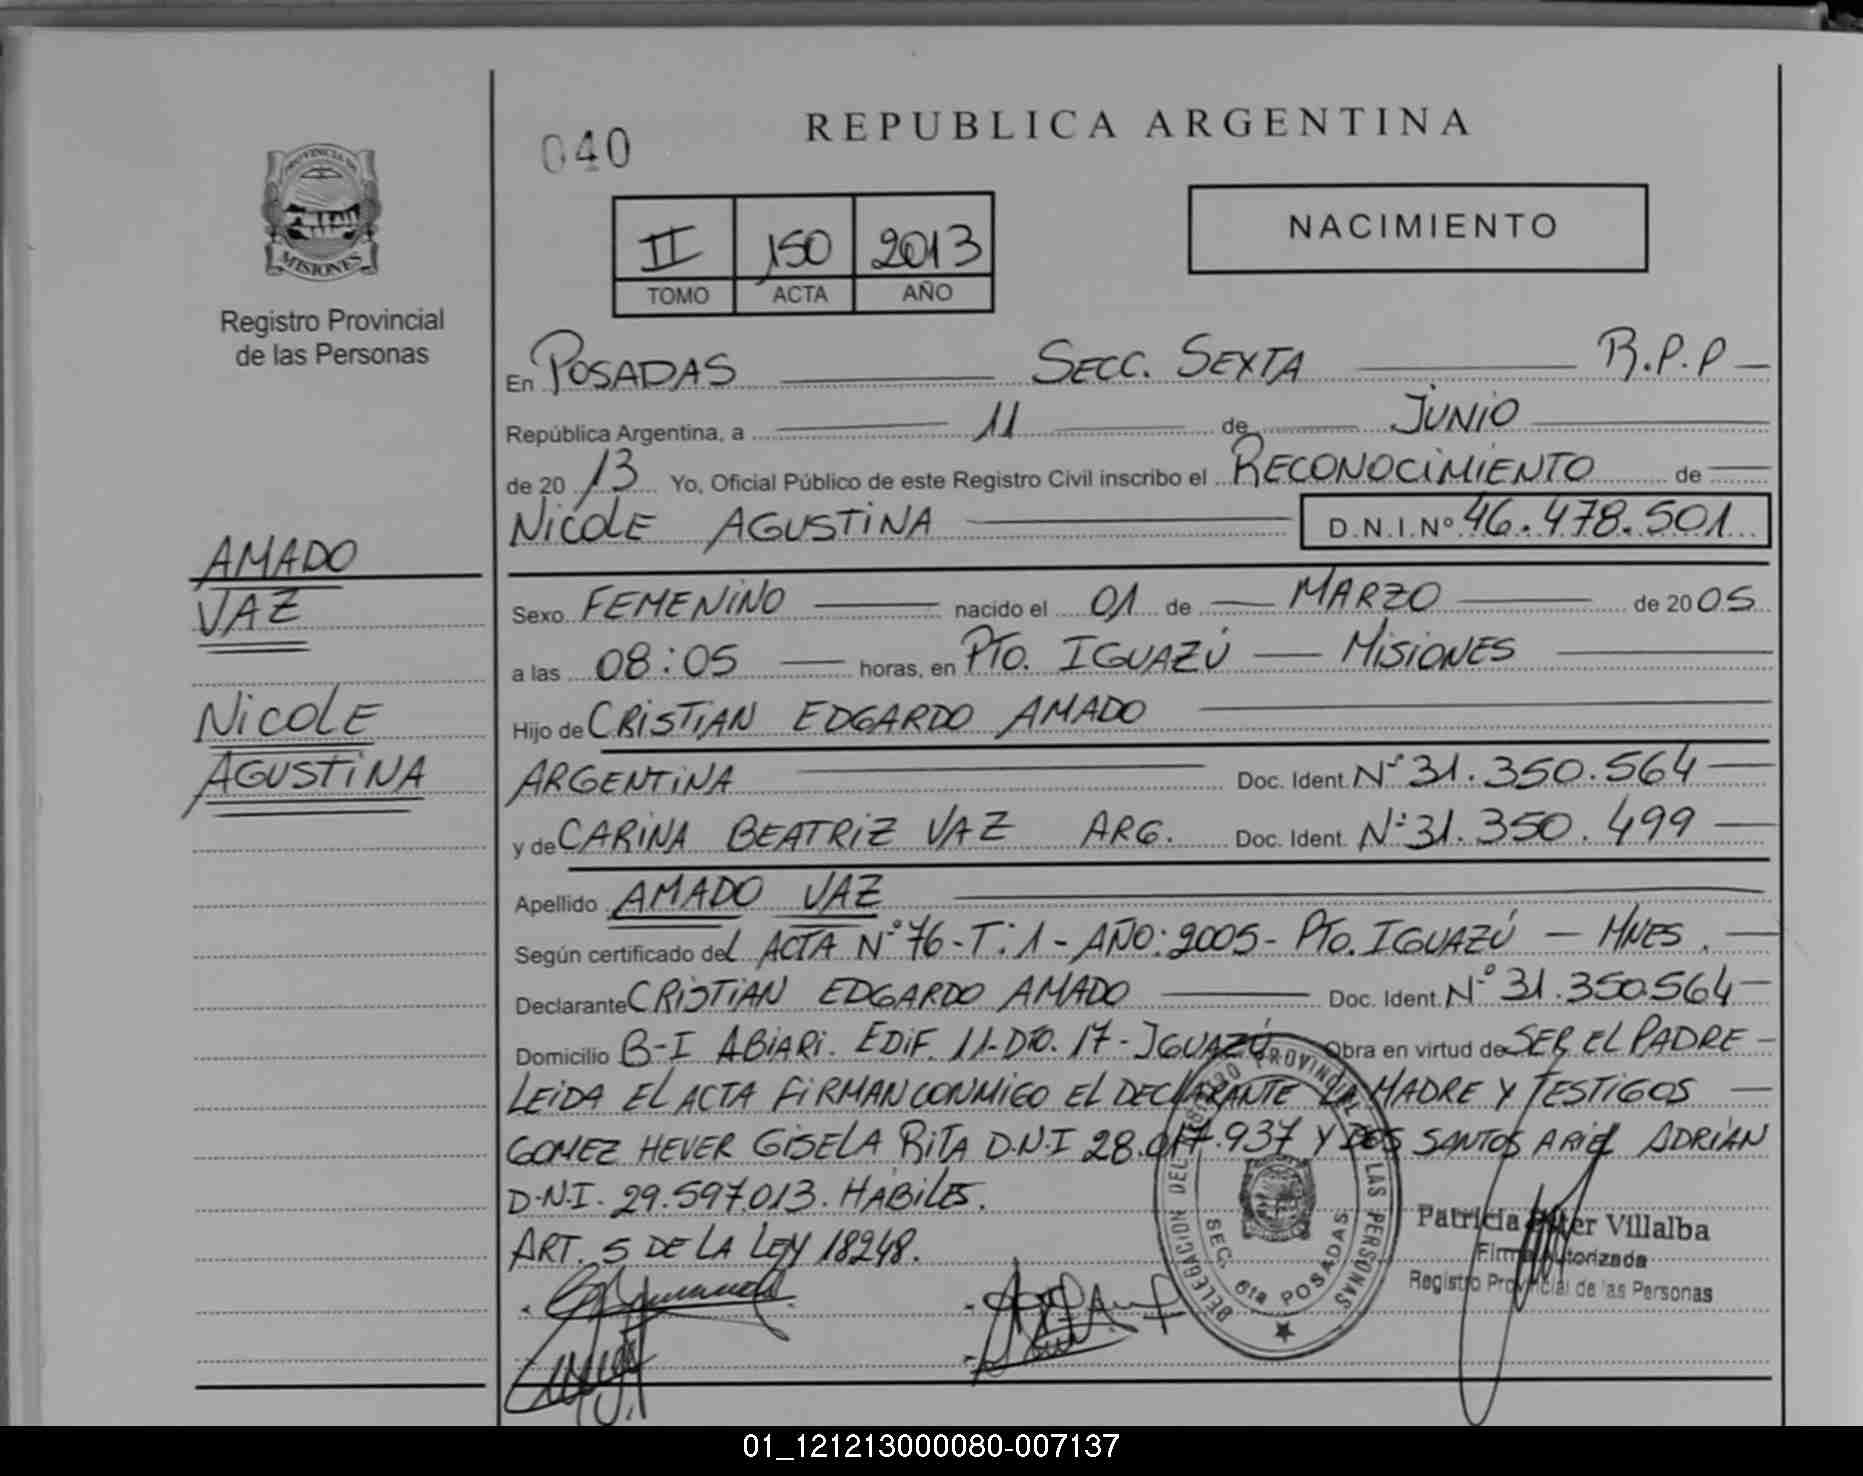 040
REPUBLICA ARGENTINA
PROVINCIA DE
MISIONES
Registro Provincial
de las Personas
II 150 2013
TOMO ACTA AÑO
NACIMIENTO
En POSADAS SECC. SEXTA R.P.P
República Argentina, a 11 de JUNIO
de 20 13 Yo, Oficial Público de este Registro Civil inscribo el RECONOCIMIENTO de
NICOLE AGUSTINA D.N.I.Nº 46.478.501
AMADO
VAZ
NICOLE
AGUSTINA
Sexo FEMENINO nacido el 01 de MARZO de 2005
a las 08:05 horas, en PTO. IGUAZÚ — MISIONES
Hijo de CRISTIAN EDGARDO AMADO
ARGENTINA Doc. Ident. Nº 31.350.564
y de CARINA BEATRIZ VAZ ARG. Doc. Ident. Nº 31.350.499
Apellido AMADO VAZ
Según certificado del ACTA Nº 76 - T: 1 - AÑO: 2005 - PTO. IGUAZÚ — MNES.
Declarante CRISTIAN EDGARDO AMADO Doc. Ident. Nº 31.350564
Domicilio B-I ABIARI. EDIF. 11-DTO. 17 - IGUAZÚ Obra en virtud de SER EL PADRE
LEIDA EL ACTA FIRMAN CONMIGO EL DECLARANTE LA MADRE Y TESTIGOS
GOMEZ HEVER GISELA RITA D.N.I 28.017.937 Y DOS SANTOS ARIEL ADRIAN
D.N.I. 29.597.013. HABILES.
ART. 5 DE LA LEY 18248.
DELEGACION DEL REGISTRO PROVINCIAL DE LAS PERSONAS
SEC. 6ta POSADAS
Patricia Villalba
Firma Autorizada
Registro Provincial de las Personas
01_121213000080-007137